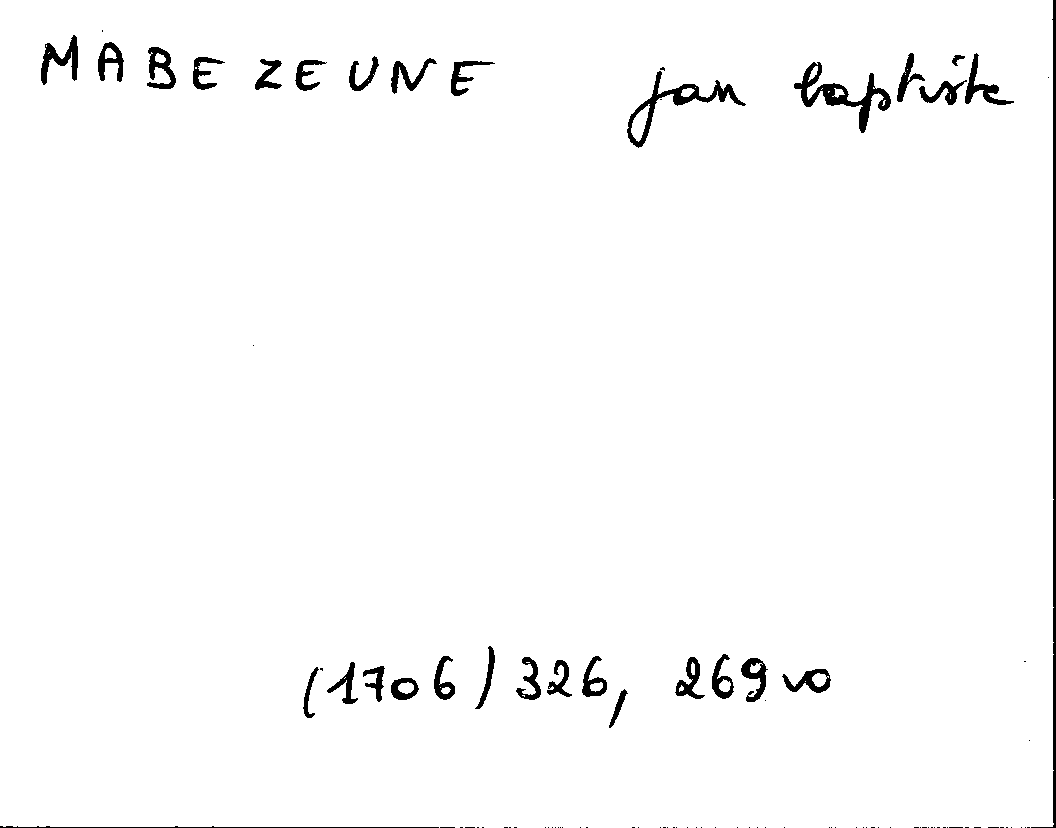 MABEZEUNE jan baptiste
(1706) 326, 269vo